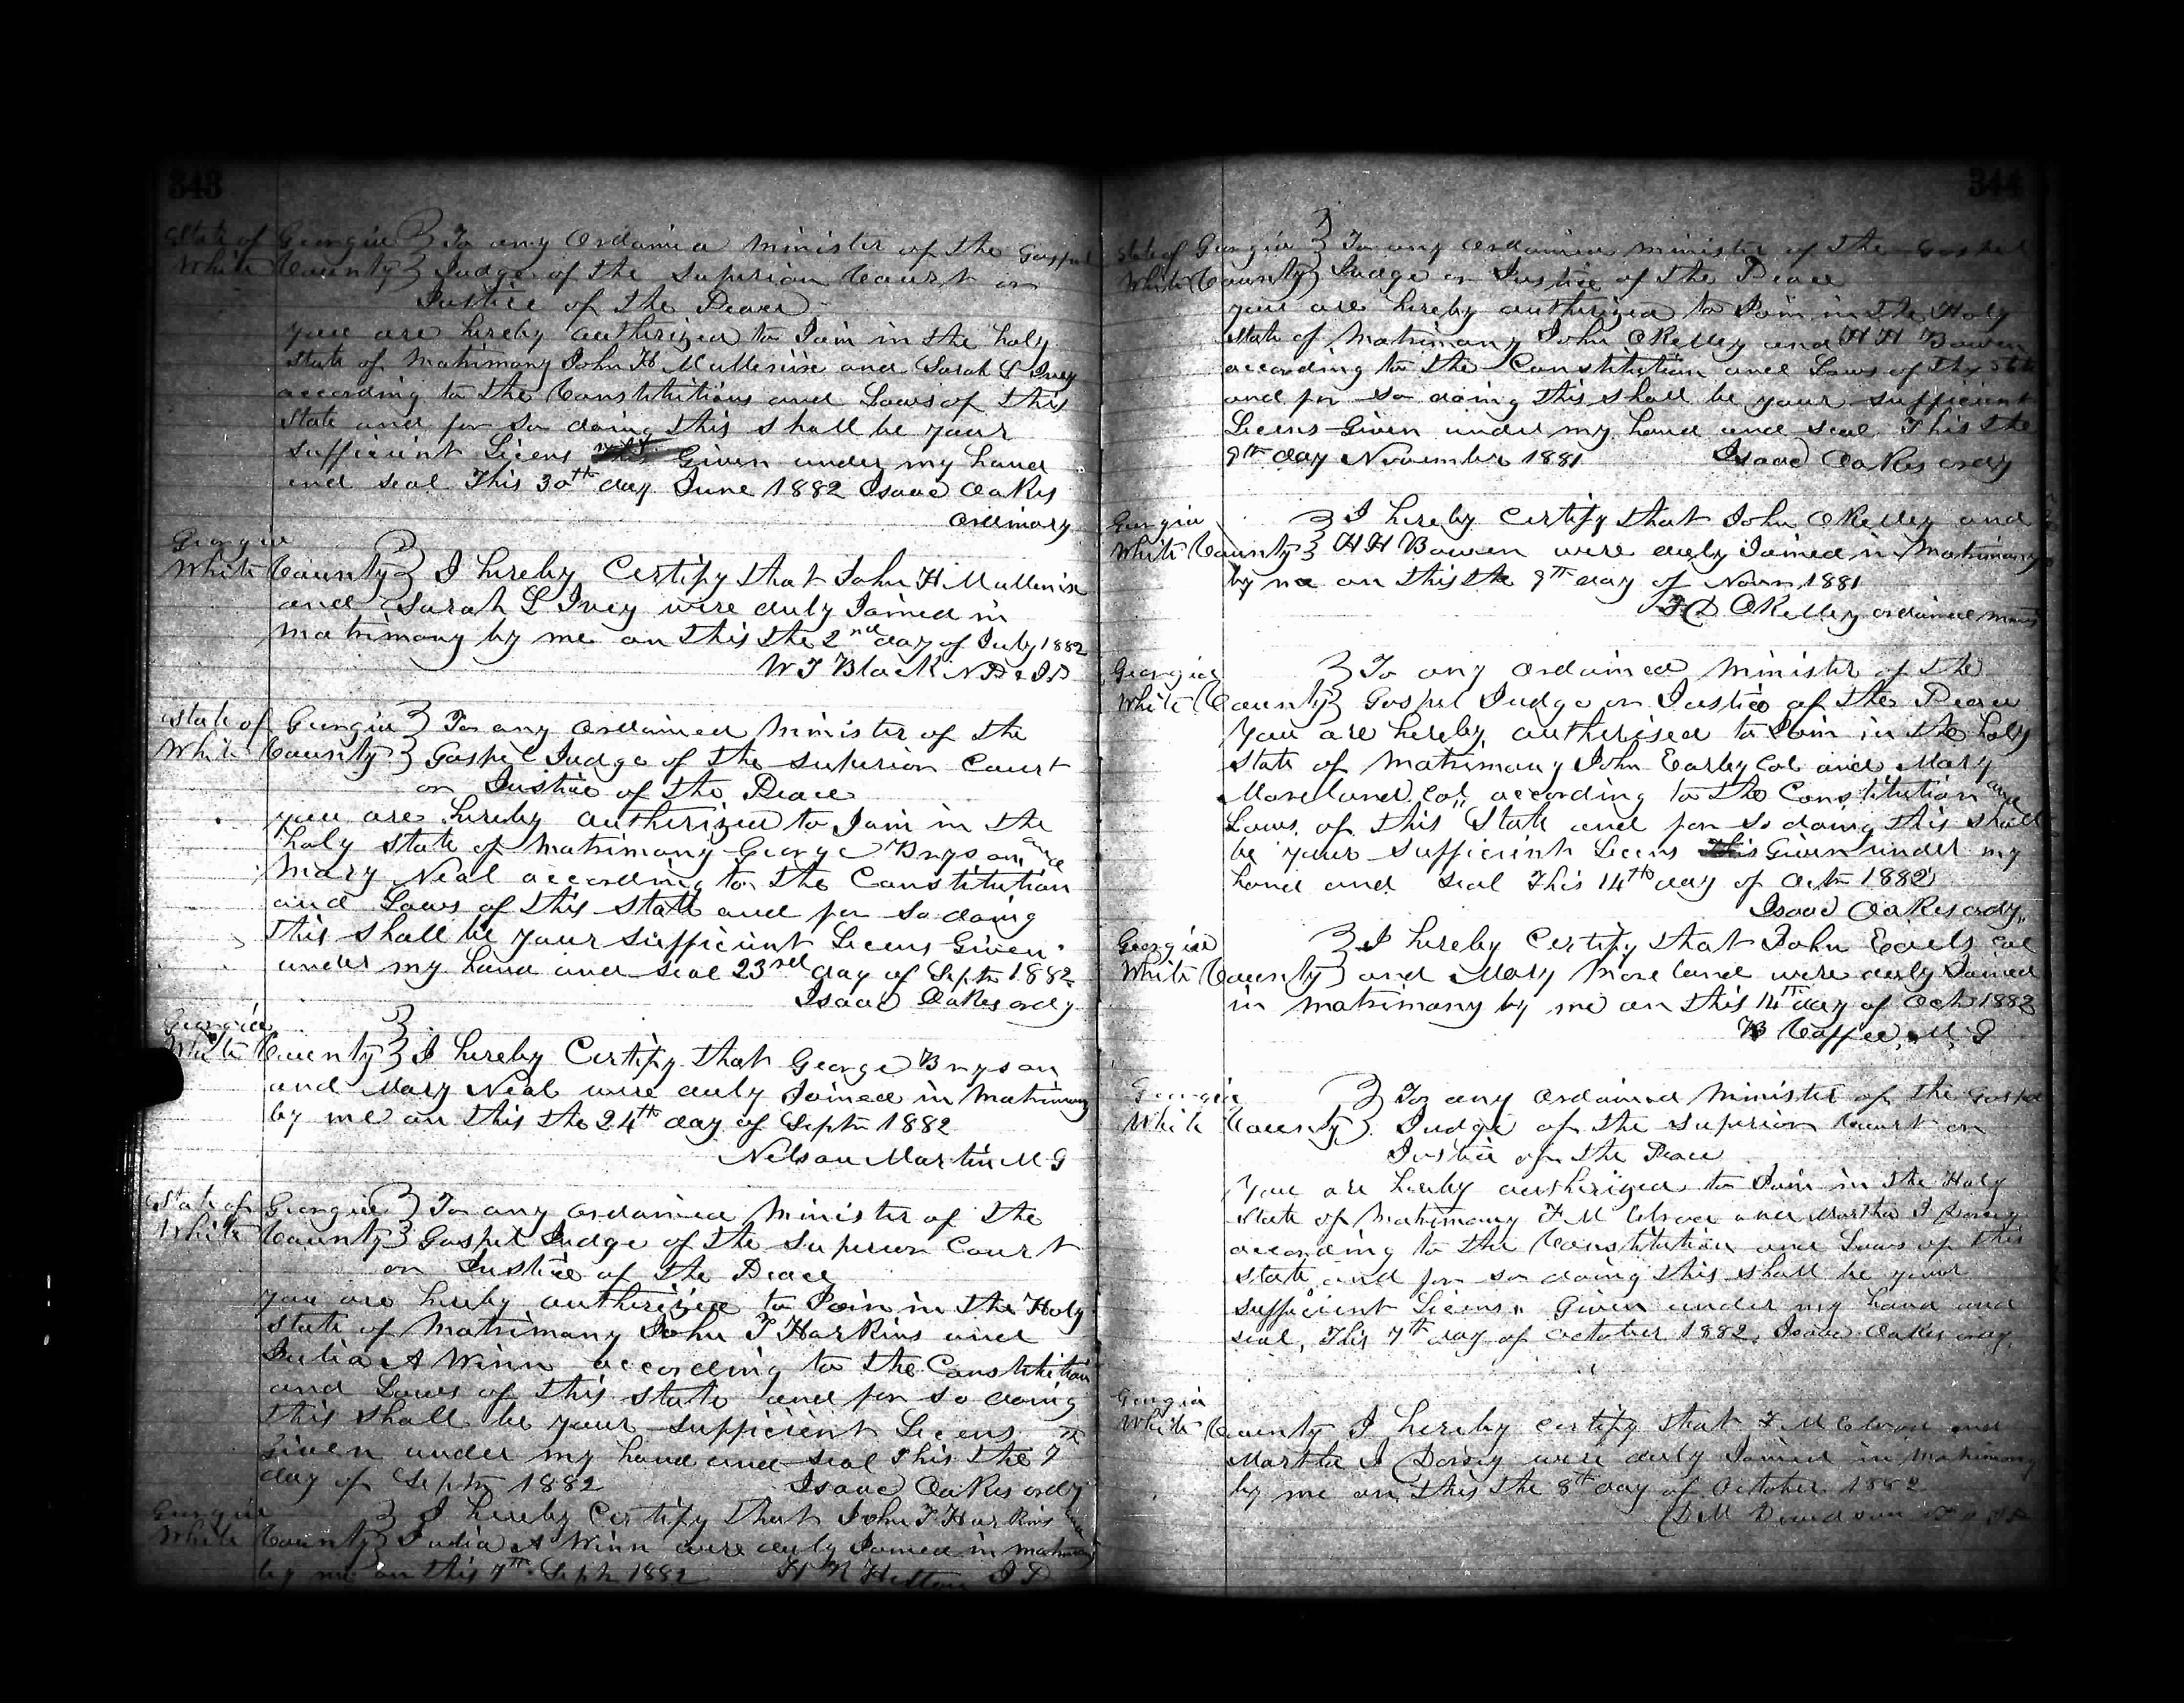 343
State of Georgia } To any Ordained Minister of the Gospel
White County } Judge of the Superior Court or
Justice of the Peace
you are hereby authorized to Join in the holy
State of Matrimony John H Mullenix and Sarah L Ivey
according to the Constitutions and Laws of this
State and for so doing this shall be your
sufficient Licens Given under my hand
and seal This 30th day June 1882 Isaac Oakes
Ordinary
Georgia
White County } I hereby Certify that John H Mullenix
and Sarah L Ivey were duly Joined in
matrimony by me on this the 2nd day of July 1882
W T Black N P & J P
State of Georgia } To any Ordained Minister of the
White County } Gospel Judge of the Superior Court
or Justice of the Peace
you are hereby autherized to Join in the
holy State of Matrimony George Bryson and
Mary Neal according to the Constitution
and Laws of this State and for so doing
this shall be your sufficient Licens Given
under my hand and seal 23rd day of Septr 1882
Isaac Oakes ordy
Georgia
White County } I hereby Certify that George Bryson
and Mary Neal were duly Joined in Matrimony
by me on this the 24th day of Septr 1882
Nelson Martin M G
State of Georgia } To any ordained Minister of the
White County } Gospel Judge of the Superior Court
or Justice of the Peace
you are hereby autherized to Join in the Holy
State of Matrimony John T Harkins and
Julia A Winn according to the Constitution
and Laws of this State and for so doing
this shall be your sufficient Licens
Given under my hand and seal This the 7th
day of Septr 1882 Isaac Oakes ordy
Georgia } I hereby Certify that John T Harkins and
White County } Julia A Winn were duly Joined in matrimony
by me on this 7th Septr 1882 J P
344
State of Georgia } To any ordained minister of the Gospel
White County } Judge or Justice of the Peace
you are hereby autherized to Join in the Holy
State of Matrimony John OKelley and H H Bowen
according to the Constitution and Laws of this State
and for so doing this shall be your sufficient
Licens Given under my hand and seal This the
9th day November 1881 Isaac Oakes ordy
Georgia } I hereby Certify that John OKelley and
White County } H H Bowen were duly Joined in Matrimony
by me on this the 9th day of Novr 1881
OKelley ordained minis
Georgia } To any ordained Minister of the
White County } Gospel Judge or Justice of the Peace
You are hereby autherised to Join in the holy
State of Matrimony John Earley Col and Mary
Moreland Col according to the Constitution and
Laws of this State and for so doing this shall
be your Sufficient Licens Given under my
hand and seal This 14th day of Octr 1882
Isaac Oakes ordy
Georgia } I hereby Certify that John Earls Col
White County } and Mary Moreland were duly Joined
in matrimony by me on this 14th day of Oct 1882
B Caffee, M, G
Georgia } To any ordained Minister of the Gospel
White County } Judge of the Superior Court or
Justice of the Peace
You are hereby autherized to Join in the Holy
State of Matrimony F M and Martha J Dorsey
according to the Constitution and Laws of this
State and for so doing this shall be your
Sufficient Licens Given under my hand and
seal, This 7th day of October 1882, Isaac Oakes ordy
Georgia
White County I hereby certify that F M and
Martha J Dorsey were duly Joined in Matrimony
by me on this the 8th day of October 1882
D M Davidson